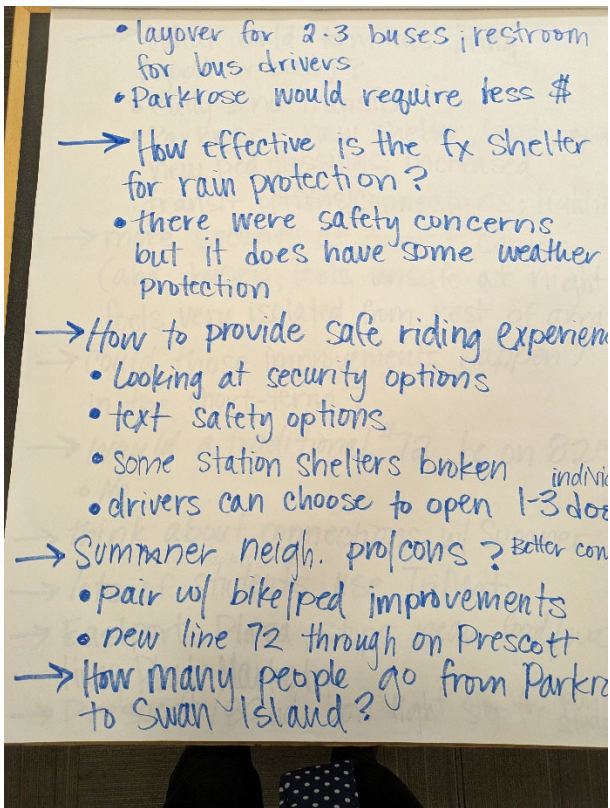 • layover for 2-3 buses; restroom
for bus drivers
• Parkrose would require less $
→ How effective is the fx shelter
for rain protection?
• there were safety concerns
but it does have some weather
protection
→ How to provide safe riding experien
• Looking at security options
• text safety options
• some station shelters broken
indivi
• drivers can choose to open 1-3 doo
→ Sumnner neigh. pro/cons? Better con
• pair w/ bike/ped improvements
• new line 72 through on Prescott
→ How many people go from Parkro
to Swan Island?